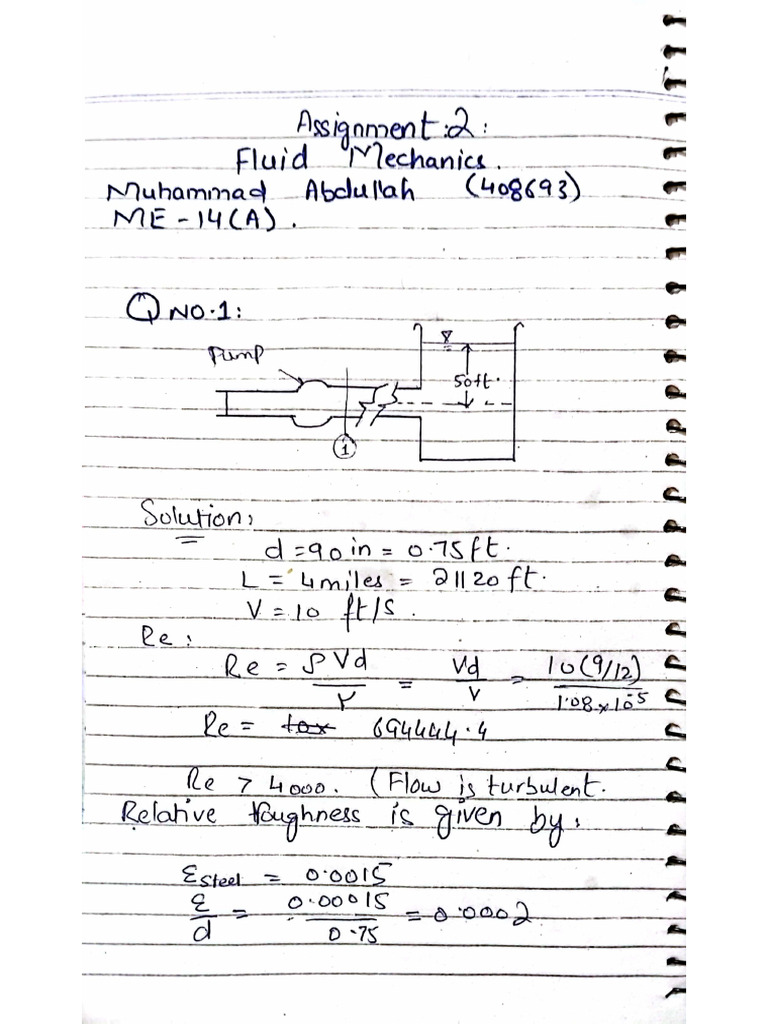 Assignment:2:
Fluid Mechanics.
Muhammad Abdullah (408693)
ME-14(A).
Q NO.1:
Pump
50ft.
1
Solution,
d = 90 in = 0.75ft.
L = 4miles = 21120 ft.
V = 10 ft/s.
Re:
Re = ρVd/μ = Vd/ν = 10(9/12)/1.08×10^-5
Re = 694444.4
Re > 4000. (Flow is turbulent.
Relative roughness is given by,
ε steel = 0.0015
ε/d = 0.00015/0.75 = 0.0002